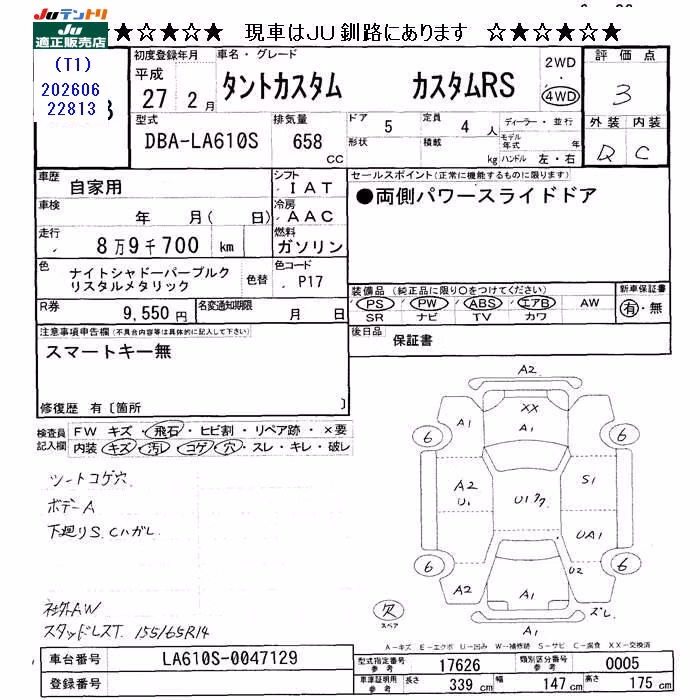 JUテントリ
JU
適正販売店
★☆★☆★ 現車はJU釧路にあります ☆★☆★☆★
(T1)
202606
22813
初度登録年月
平成
27 2 月
車名・グレード
タントカスタム カスタムRS
2WD
・
4WD
評価点
3
外装 内装
D C
型式
DBA-LA610S
排気量
658
CC
ドア 5
形状
定員 4 人
積載 kg
ディーラー・並行
モデル年式 年
ハンドル 左・右
車歴
自家用
シフト
IAT
車検
年 月( 日)
冷房
AAC
走行
8万9千700 km
燃料
ガソリン
色
ナイトシャドーパープルク
リスタルメタリック
色替
色コード
P17
R券
9,550円
名変通知期限
月 日
セールスポイント(正常に機能するものに限ります)
●両側パワースライドドア
装備品 (純正品に限り○をつけてください)
PS ・ PW ・ ABS ・ エアB ・ AW
SR ナビ TV カワ
新車保証書
有・無
後日品
保証書
注意事項申告欄(不具合内容等は具体的に記入して下さい)
スマートキー無
修復歴 有〔箇所 〕
検査員
記入欄
FW キズ・飛石・ヒビ割・リペア跡・×要
内装 キズ・汚レ・コゲ・穴・スレ・キレ・破レ
シートコゲ穴
ボデーA
下廻りS.Cハガレ
社外AW
スタッドレスT. 155/65R14
A2
XX
A1
A1
6
6
A2
U1
U1
S1
UA1
U2
6
6
A2
A1
A1
ズレ
欠
スペア
A-キズ E-エクボ U-凹み W-補修跡 S-サビ C-腐食 XX-交換済
車台番号 LA610S-0047129
登録番号
型式指定番号
参考
17626
類別区分番号
参考
0005
車庫証明用
参考
長さ 339 cm 幅 147 cm 高さ 175 cm